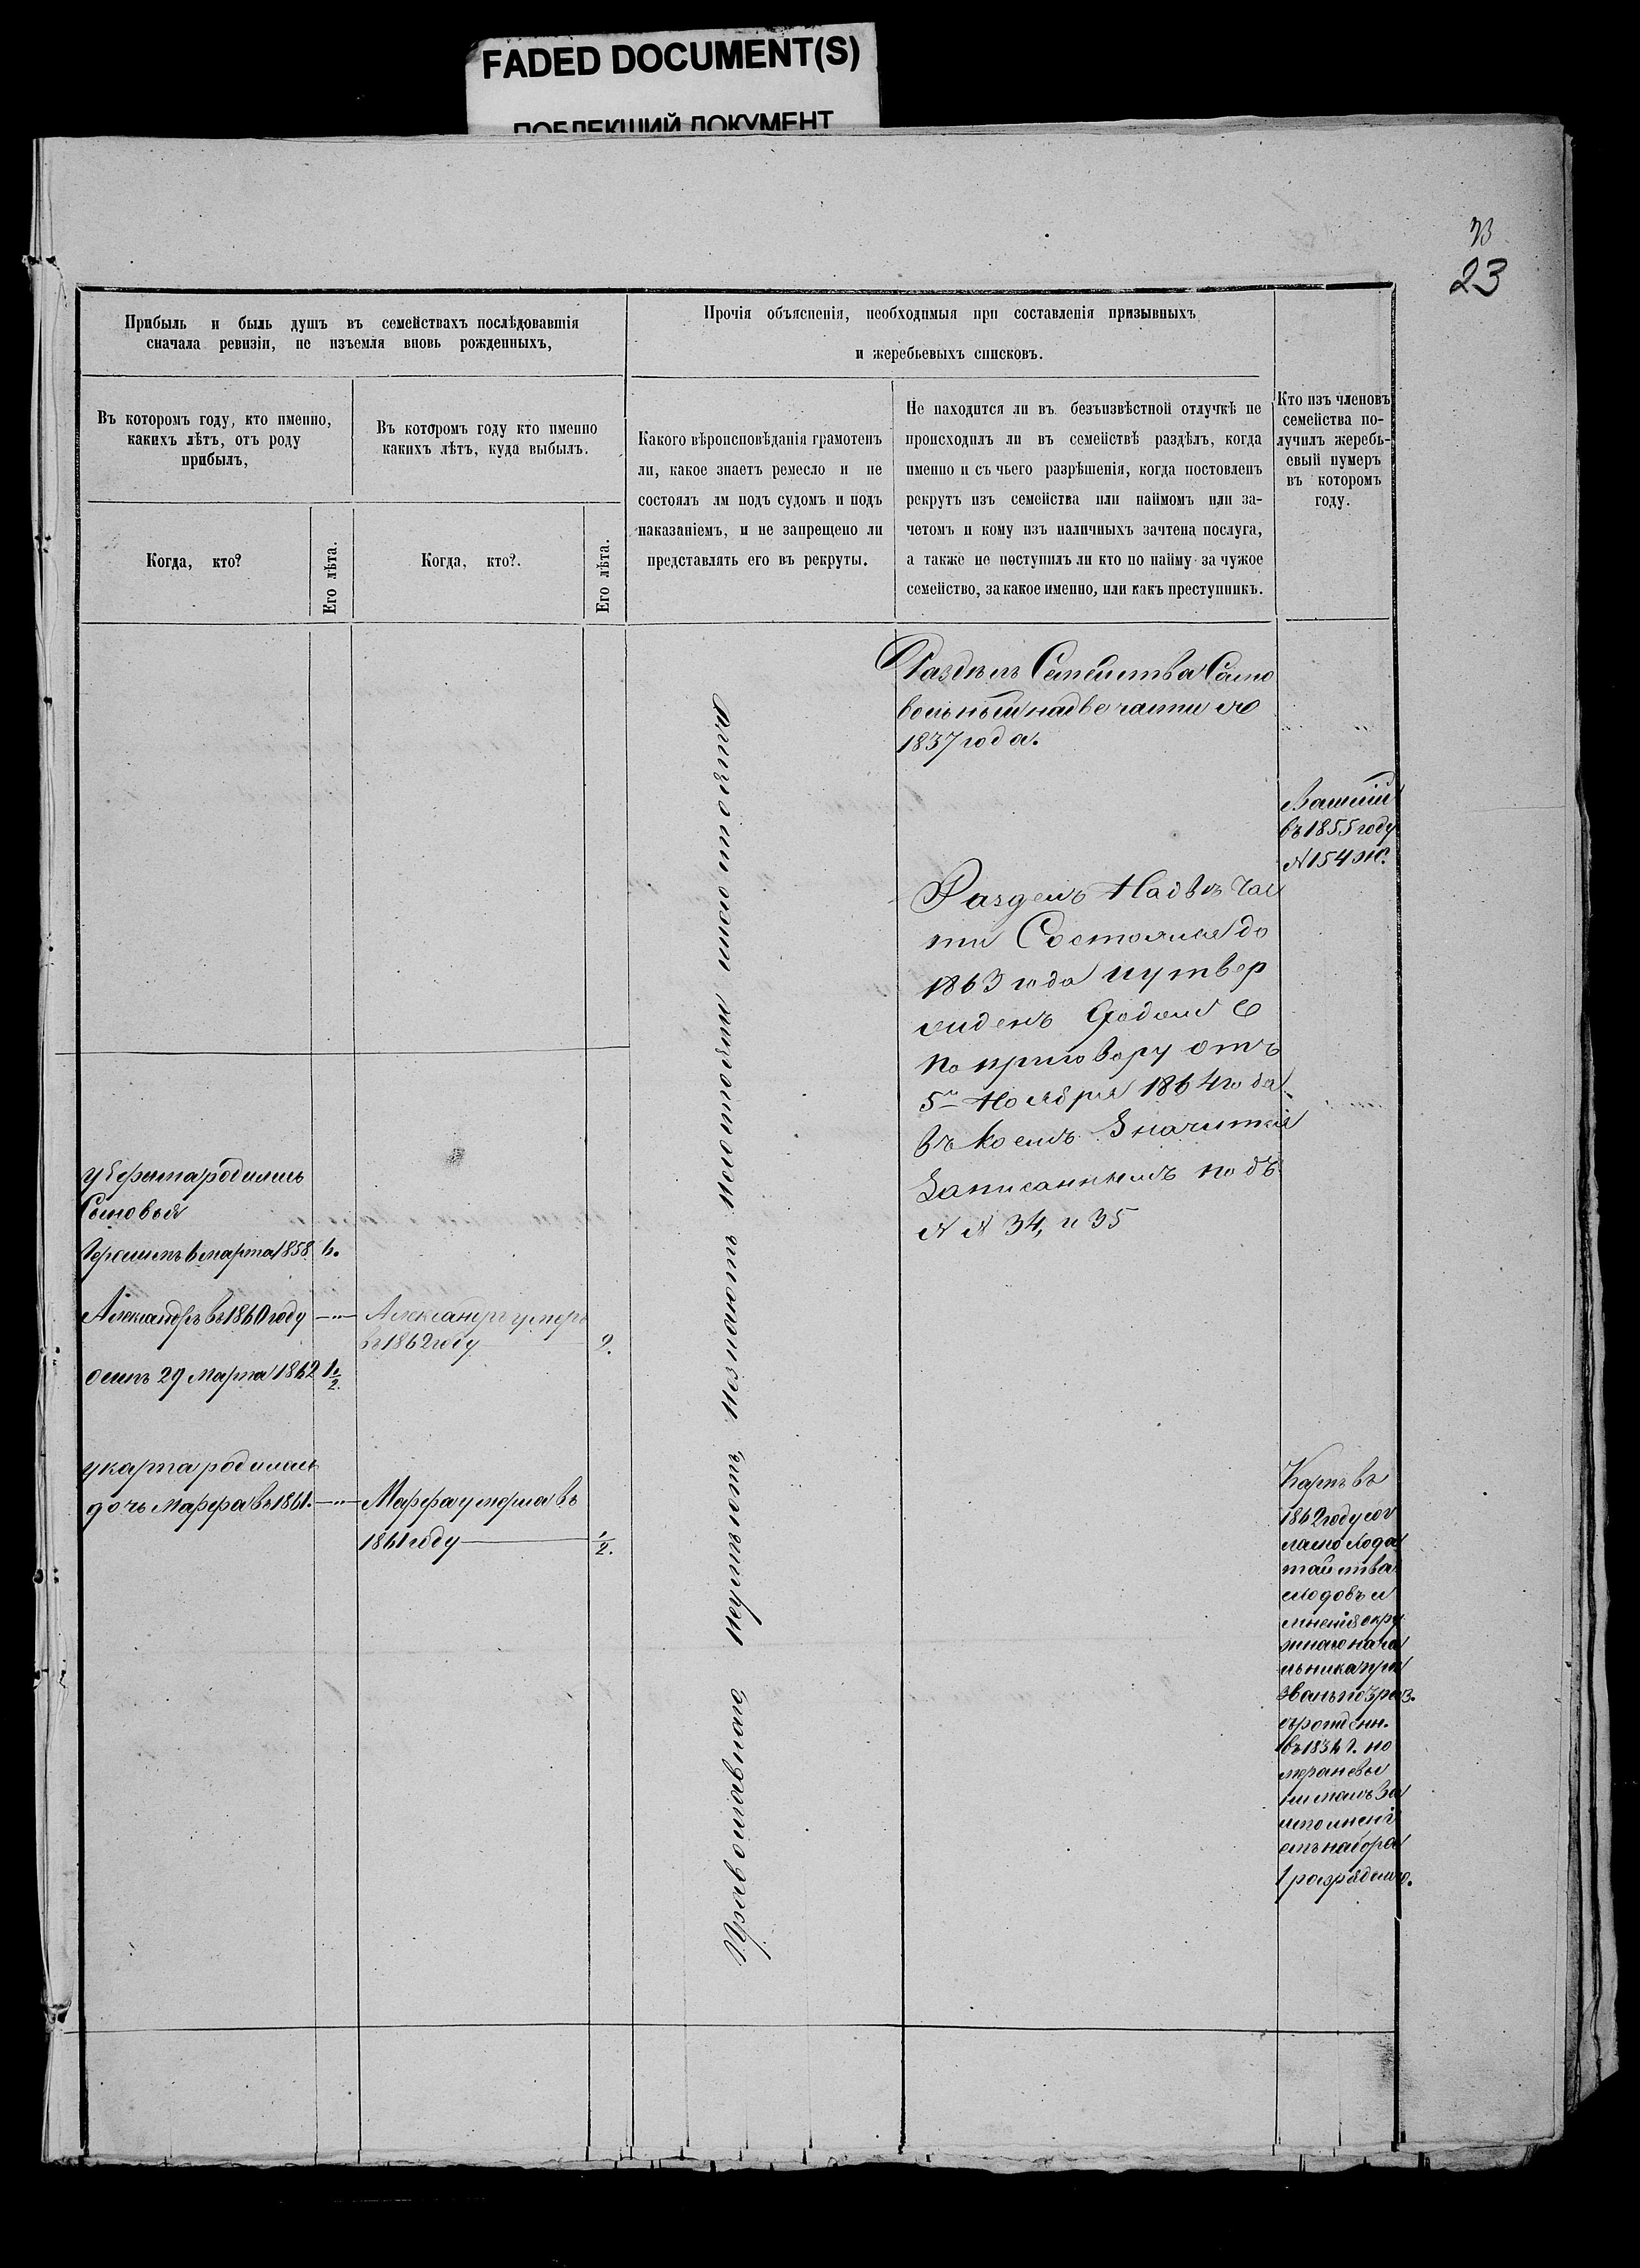 FADED DOCUMENT(S)
ПОБЛЕКШИЙ ДОКУМЕНТ
23
Прибыль и быль душъ въ семействахъ послѣдовавшія
сначала ревизіи, не изъемля вновь рожденныхъ,
Въ которомъ году, кто именно,
какихъ лѣтъ, отъ роду
прибылъ,
Въ которомъ году кто именно
какихъ лѣтъ, куда выбылъ.
Когда, кто?
Его лѣта.
Когда, кто?.
Его лѣта.
Прочія объясненія, необходимыя при составленія призывныхъ
и жеребьевыхъ списковъ.
Какого вѣроисповѣданія грамотенъ
ли, какое знаетъ ремесло и не
состоялъ лм подъ судомъ и подъ
наказаніемъ, и не запрещено ли
представлять его въ рекруты.
Не находится ли въ безъизвѣстной отлучкѣ не
происходилъ ли въ семействѣ раздѣлъ, когда
именно и съ чьего разрѣшенія, когда постовленъ
рекрутъ изъ семейства или наймомъ или за-
четомъ и кому изъ наличныхъ зачтена послуга,
а также не поступилъ ли кто по найму за чужое
семейство, за какое именно, или какъ преступникъ.
Кто изъ членовъ
семейства по-
лучилъ жеребь-
евый нумеръ
въ которомъ
году.
родились
Сыновья
6 марта 1858 6.
Александръ въ 1860 году
Александръ умеръ
въ 1862 году 2.
осипъ 29 Марта 1862 1/2.
у карпа родилась
дочь Марфа въ 1861.
Марфа умерла въ
1861 году 1/2.
Православнаго, неумѣютъ, незнаютъ несостояли
Раздѣлъ Семейства Само
вольный надве части
1837 года.
Разделъ Надвѣ Час
ти Состоялся до
1863 года иутвер
жденъ
по приговору отъ
5 Ноября 1864 года
въ коемъ Значится
Записаннымъ подъ
N N 34, и 35
въ 1855 году
N 154
Карпъ въ
1862 году сог
ласно хода
тайства
и
мнѣнія окру
жнаго нача
льника при
званъ
въ 1834 г. но
мера невы
нималъ за
исполнені
емъ набора
1 разрядомъ.